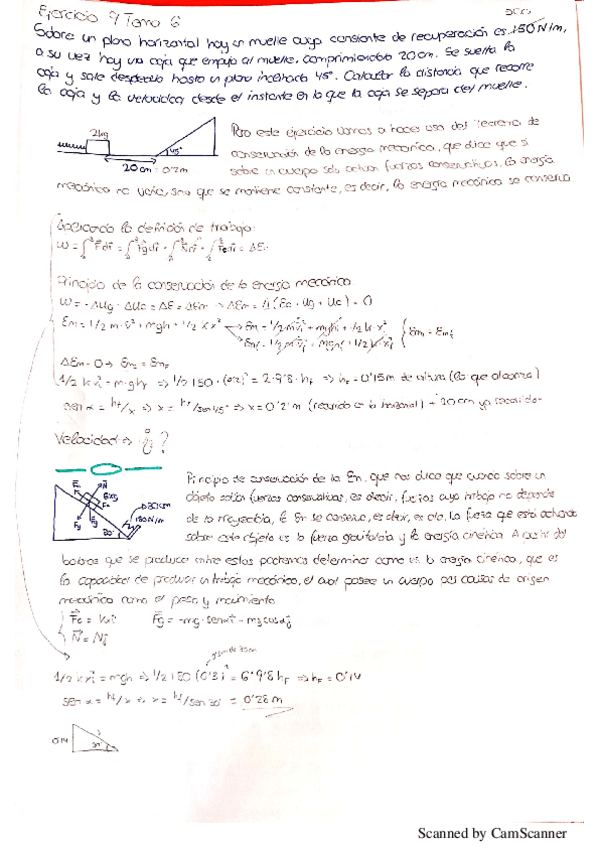 Ejercicio 9 Tema 6
Sobre un plano horizontal hay un muelle cuya constante de recuperación es 150 N/m,
a su vez hay una caja que empuja al muelle, comprimiéndolo 20cm. Se suelta la
caja y sale despedida hasta un plano inclinado 45°. Calcular la distancia que recorre
la caja y la velocidad desde el instante en lo que la caja se separa del muelle.
2kg
45°
20cm = 0'2m
Para este ejercicio vamos a hacer uso del Teorema de
conservación de la energía mecánica, que dice que si
sobre un cuerpo solo actúan fuerzas conservativas, la energía
mecánica no varía, sino que se mantiene constante, es decir, la energía mecánica se conserva
Aplicando la definición de trabajo:
Principio de la conservación de la energía mecánica
W = -ΔUg - ΔUe = ΔE = ΔEm → ΔEm = Δ(Ec + Ug + Ue) = 0
Em = 1/2 m·v² + mgh + 1/2 k x²
ΔEm = 0 → Em₀ = Emf
1/2 k x² = m·g·hf => 1/2 150 · (0'2)² = 2·9'8·hf => hf = 0'15m de altura (lo que alcanza)
sen α = hf/x => x = hf/sen45° => x = 0'2 m (recorrido en la horizontal) + 20cm ya recorridos
Velocidad → ¿?
30°
Principio de conservación de la Em, que nos dice que cuando sobre un
objeto actúa fuerzas conservativas, es decir, fuerzas cuyo trabajo no depende
de la trayectoria, la Em se conserva, es decir, es cte. La fuerza que está actuando
sobre este objeto es la fuerza gravitatoria y la energía cinética. A partir del
balance que se produce entre estas podremos determinar como es la energía cinética, que es
la capacidad de producir un trabajo mecánico, el cual posee un cuerpo por causas de origen
mecánico como el peso y movimiento
Fg = -mg·senαi - mgcosαj
N = Nj
1/2 kx² = mgh => 1/2 150 (0'3)² = 6·9'8 hf => hf = 0'14
sen α = hf/x => x = hf/sen 30° = 0'28 m
0'14
30°
Scanned by CamScanner